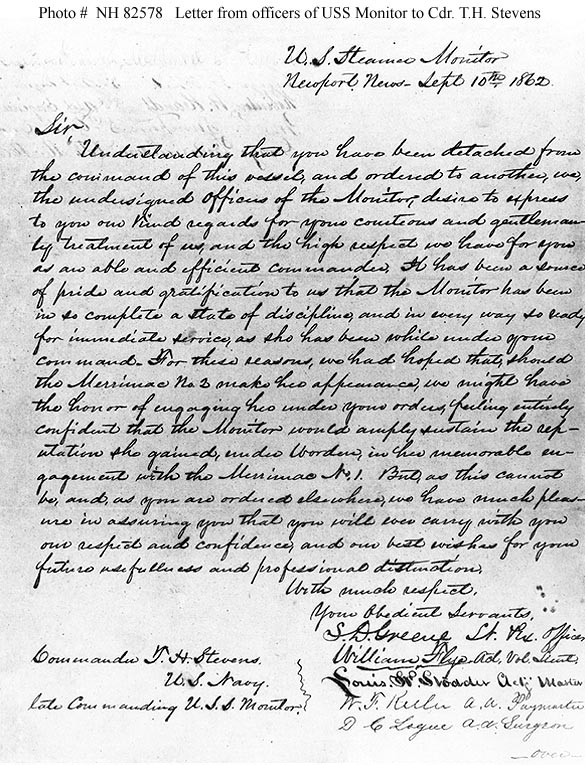 Photo # NH 82578 Letter from officers of USS Monitor to Cdr. T.H. Stevens
U.S. Steamer Monitor
Newport News - Sept 10th 1862.
Sir
Understanding that you have been detached from
the command of this vessel, and ordered to another, we,
the undersigned Officers of the Monitor, desire to express
to you our kind regards for your courteous and gentleman-
ly treatment of us, and the high respect we have for you
as an able and efficient commander. It has been a source
of pride and gratification to us that the Monitor has been
in so complete a state of discipline, and in every way so ready
for immediate service, as she has been while under your
command - For these reasons, we had hoped that, should
the Merrimac No. 2 make her appearance, we might have
the honor of engaging her under your orders, feeling entirely
confident that the Monitor would amply sustain the rep-
utation she gained, under Worden, in her memorable en-
gagement with the Merrimac No. 1. But, as this cannot
be, and, as you are ordered elsewhere, we have much pleas-
ure in assuring you that you will ever carry with you
our respect and confidence, and our best wishes for your
future usefullness and professional distinction.
With much respect.
Your Obedient Servants,
S. D. Greene Lt. Ex. Officer
William Flye Ad. Vol. Lieut,
Louis N. Stodder Actg Master
W. F. Keeler A. A. Paymaster
D C Logue a.a. Surgeon
Commander T. H. Stevens.
U.S. Navy.
late Commanding U.S.S. Monitor.
- over -